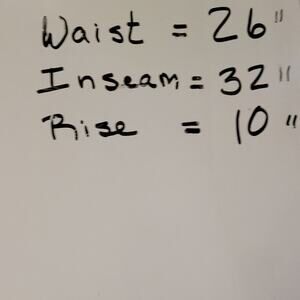 Waist = 26"
Inseam = 32"
Rise = 10"